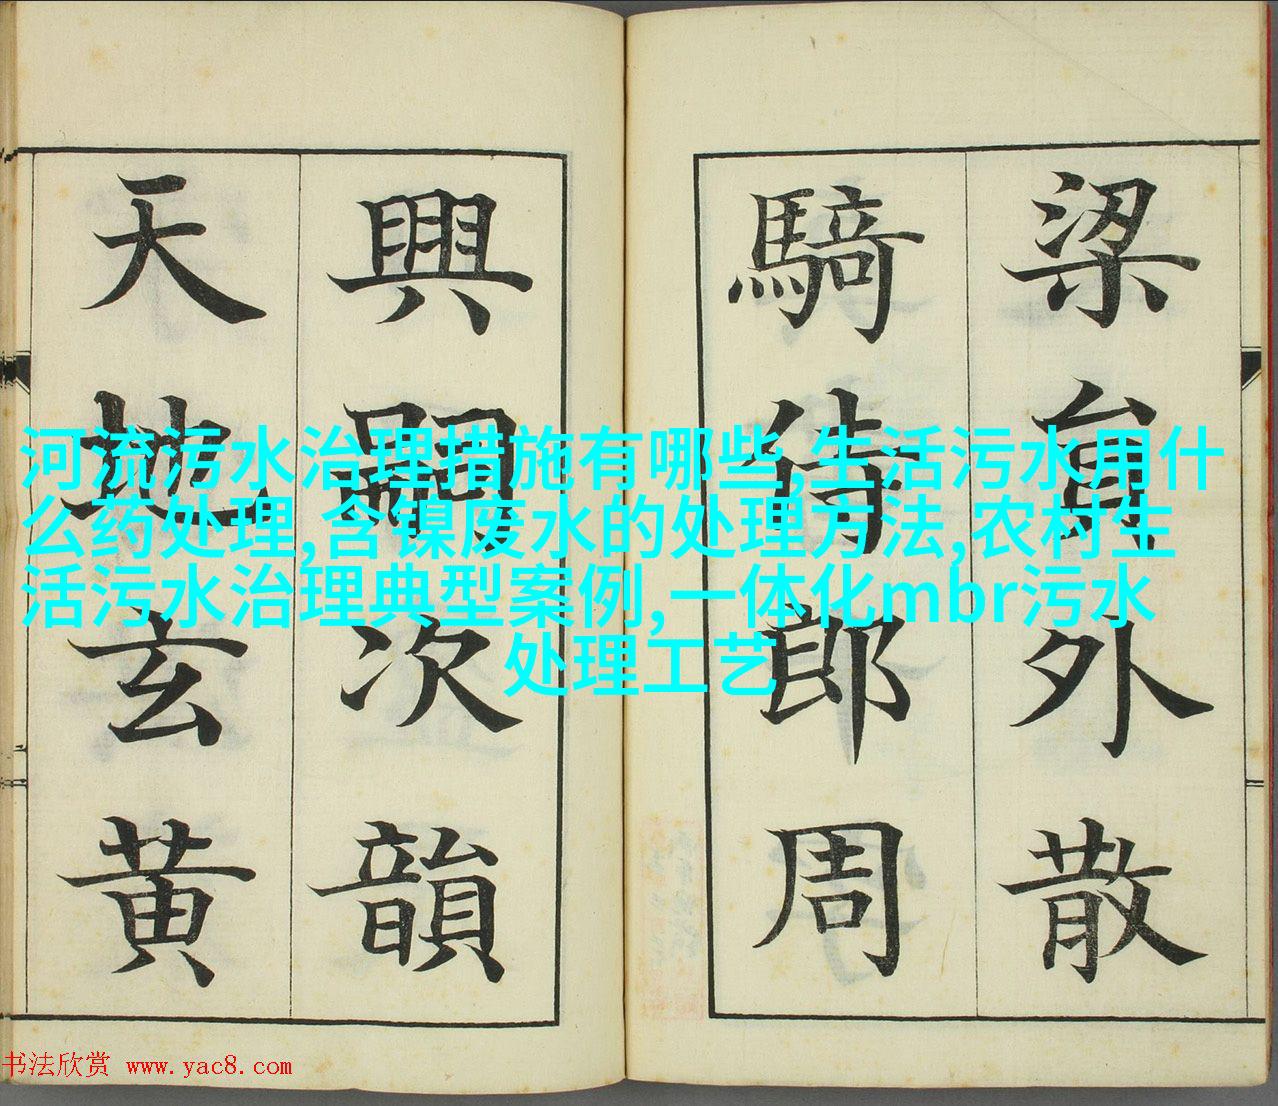 梁貟外散
騎侍郎周
興嗣次韻
天地玄黄
河流污水治理措施有哪些,生活污水用什
么药处理,含镍废水的处理方法,农村生
活污水治理典型案例,一体化mbr污水
处理工艺
书法欣赏 www.yac8.com